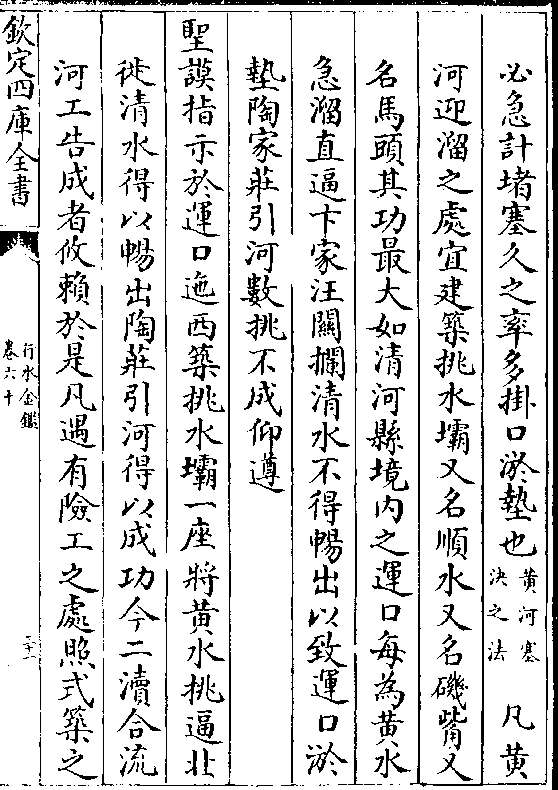 必急計堵塞久之率多掛口淤墊也黃河塞決之法凡黃
河迎溜之處宜建築挑水壩又名順水又名磯觜又
名馬頭其功最大如清河縣境內之運口每為黃水
急溜直逼卞家汪闗攔清水不得暢出以致運口淤
墊陶家莊引河數挑不成仰遵
聖謨指示於運口迤西築挑水壩一座將黃水挑逼北
徙清水得以暢出陶莊引河得以成功今二瀆合流
河工告成者攸賴於是凡遇有險工之處照式築之
欽定四庫全書
行水金鑑
卷六十